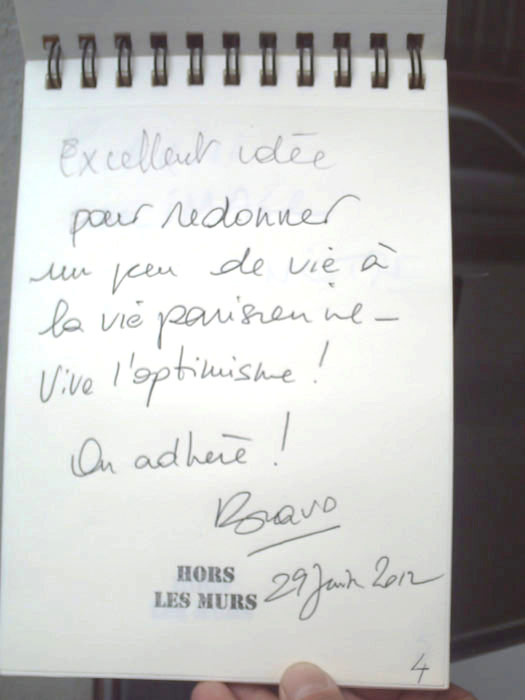 Excellent idée
pour redonner
un peu de vie à
la vie parisienne –
Vive l'optimisme !
On adhère !
Bravo
HORS
LES MURS
29 Juin 2012
4